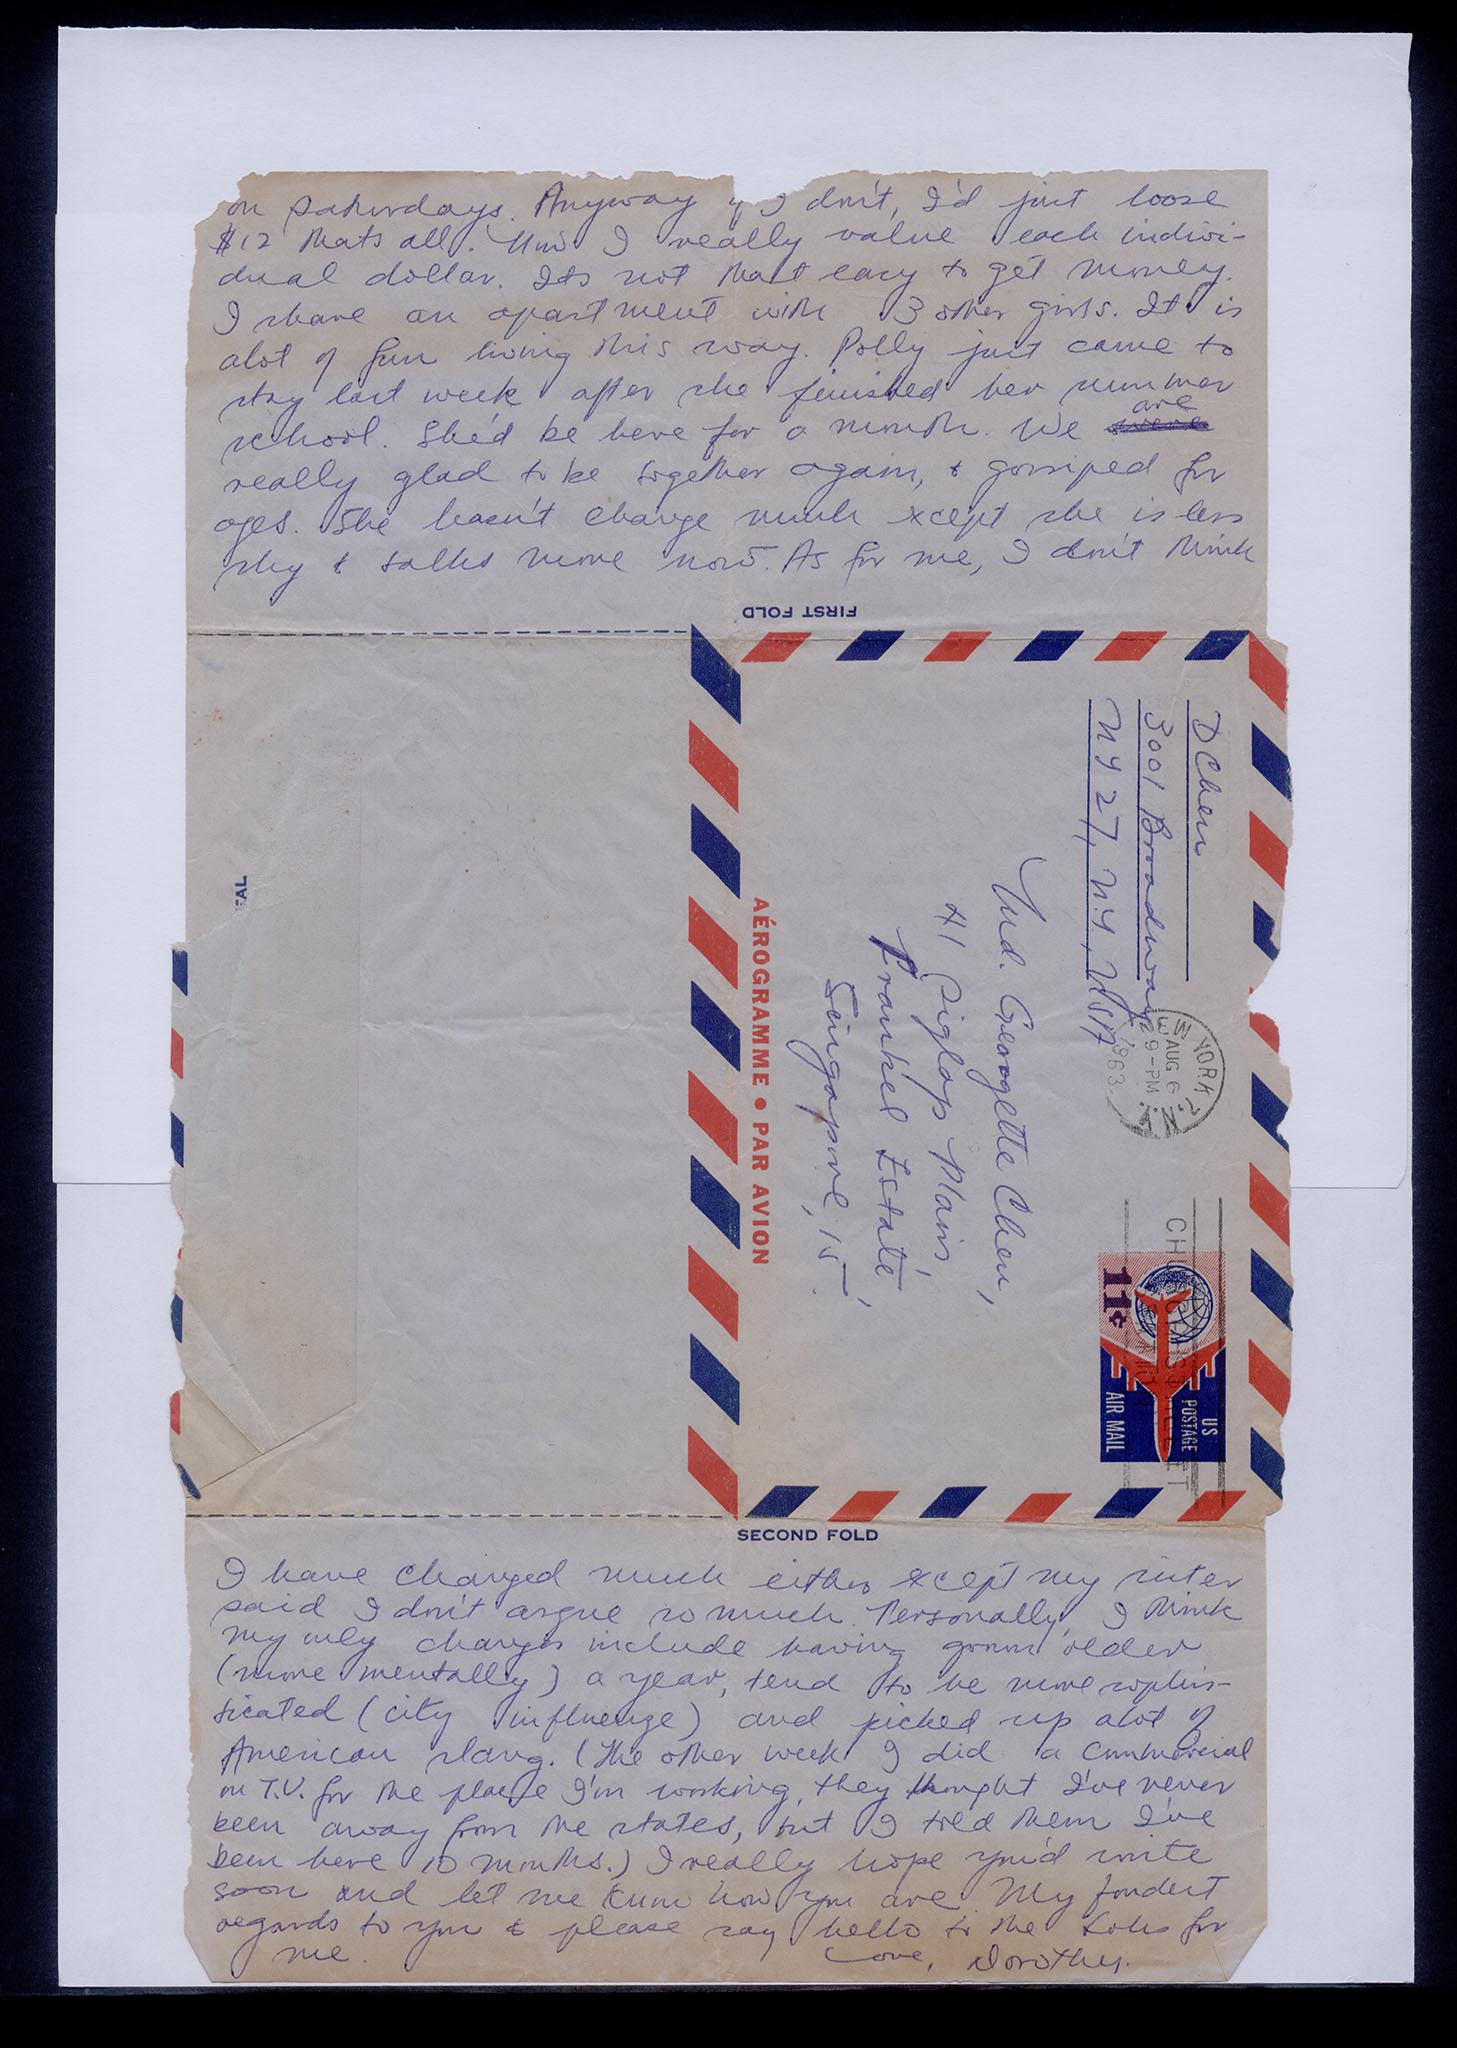 on Saturdays. Anyway if I don't, I'd just loose
$12 thats all. Now I really value each indivi-
dual dollar. Its not that easy to get money.
I share an apartment with 3 other girls. It is
alot of fun living this way. Polly just came to
stay last week after she finished her summer
school. She'd be here for a month. We are
really glad to be together again, & gossiped for
ages. She hasn't change much except she is less
shy & talks more now. As for me, I don't think
FIRST FOLD
D Chen
3001 Broadway
N Y 27, N.Y, USA
NEW YORK, N.Y.
AUG 6
9-PM
1963
11¢
US
POSTAGE
AIR MAIL
Md. Georgette Chen,
41 Siglap Plain,
Frankel Estate,
Singapore, 15.
AÉROGRAMME • PAR AVION
SECOND FOLD
I have changed much either except my sister
said I don't argue so much. Personally, I think
my only changes include having grown older
(more mentally) a year, tend to be more sophis-
ticated (city influence) and picked up alot of
American slang. (The other week I did a commercial
on T.V. for the place I'm working, they thought I've never
been away from the states, but I told them I've
been here 10 months.) I really hope you'd write
soon and let me know how you are. My fondest
regards to you & please say hello to the Lohs for
me. Love, Dorothy.